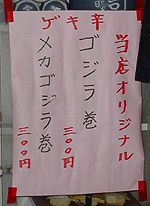 ゲキ辛
当店オリジナル
ゴジラ巻
三〇〇円
メカゴジラ巻
三〇〇円